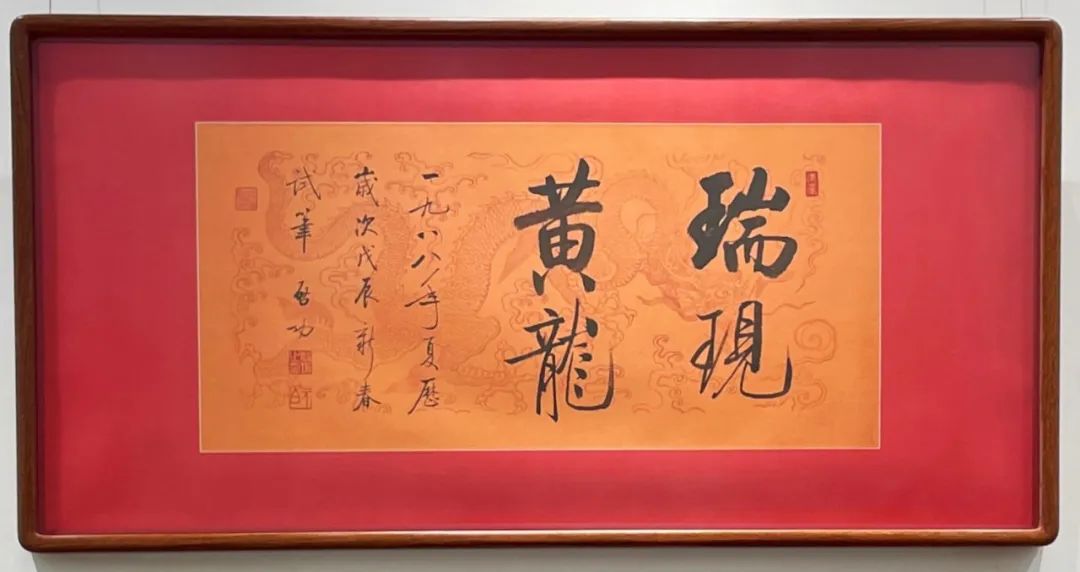 瑞現
黄龍
一九八八年夏歷
歲次戊辰新春
試筆 啟功